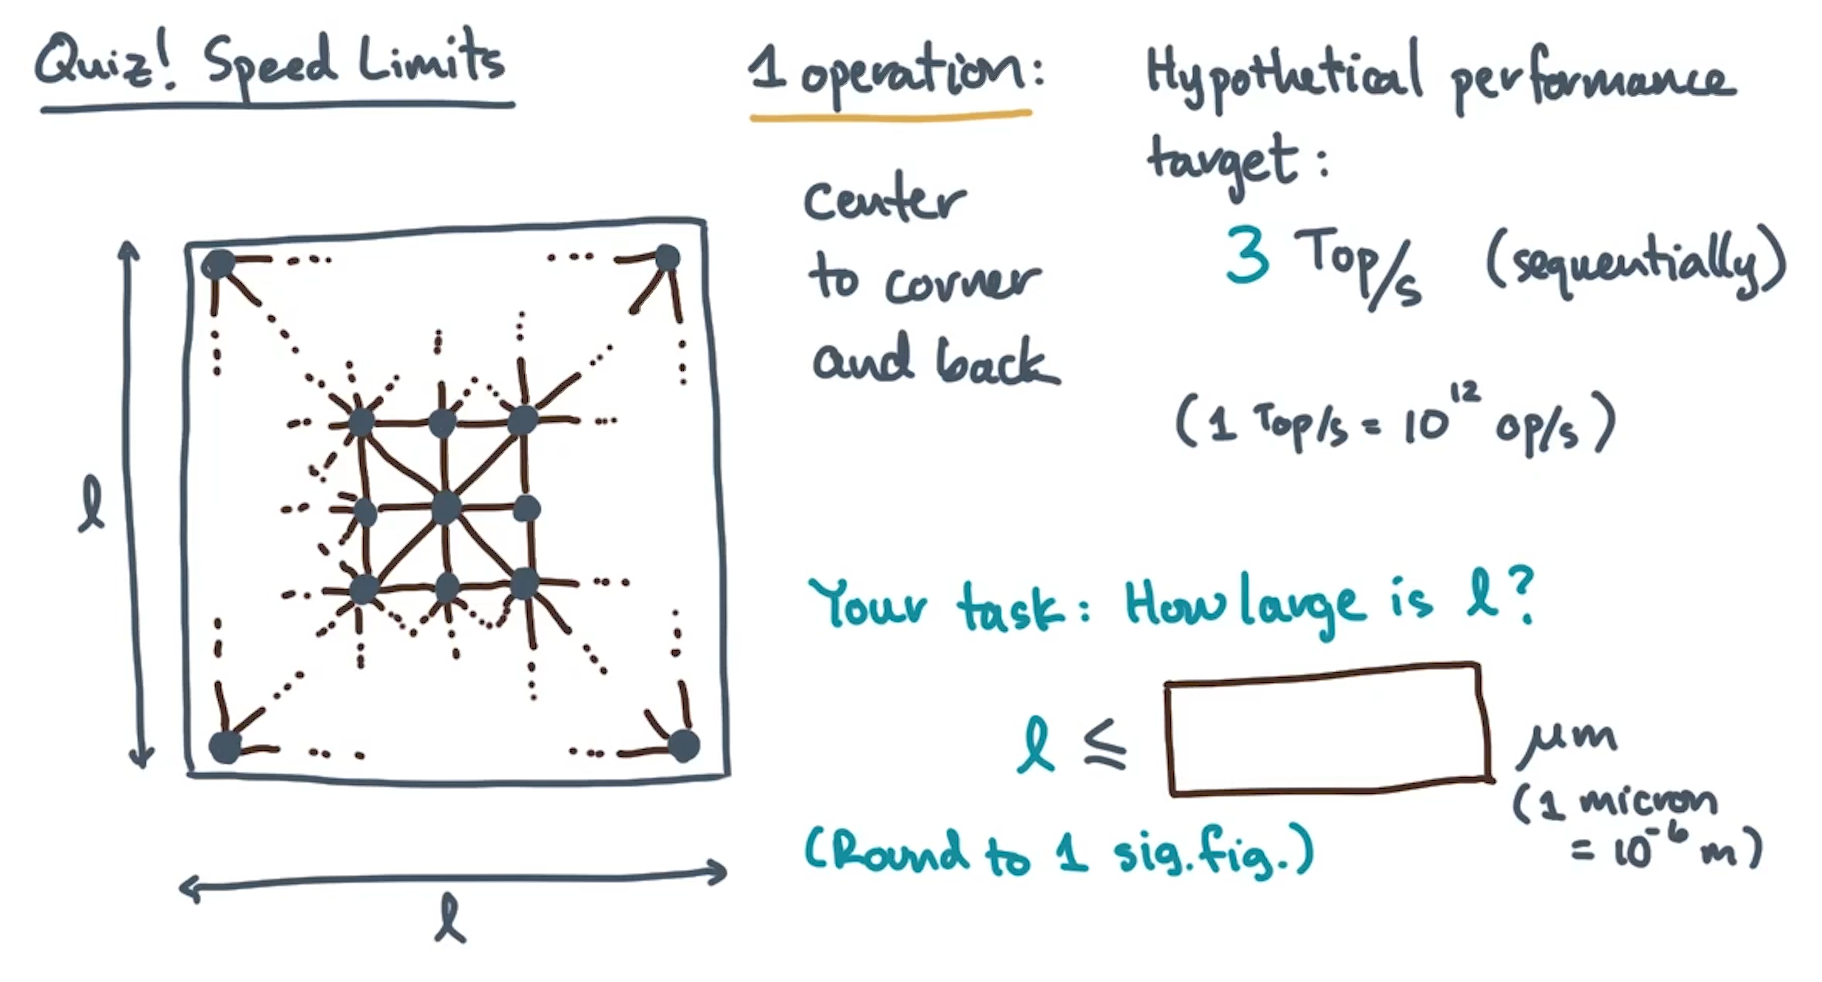 Quiz! Speed Limits
1 operation:
center
to corner
and back
Hypothetical performance
target:
3 Top/s (sequentially)
(1 Top/s = 10¹² op/s)
l
l
Your task: How large is l?
l ≤ μm
(1 micron
= 10⁻⁶ m)
(Round to 1 sig.fig.)